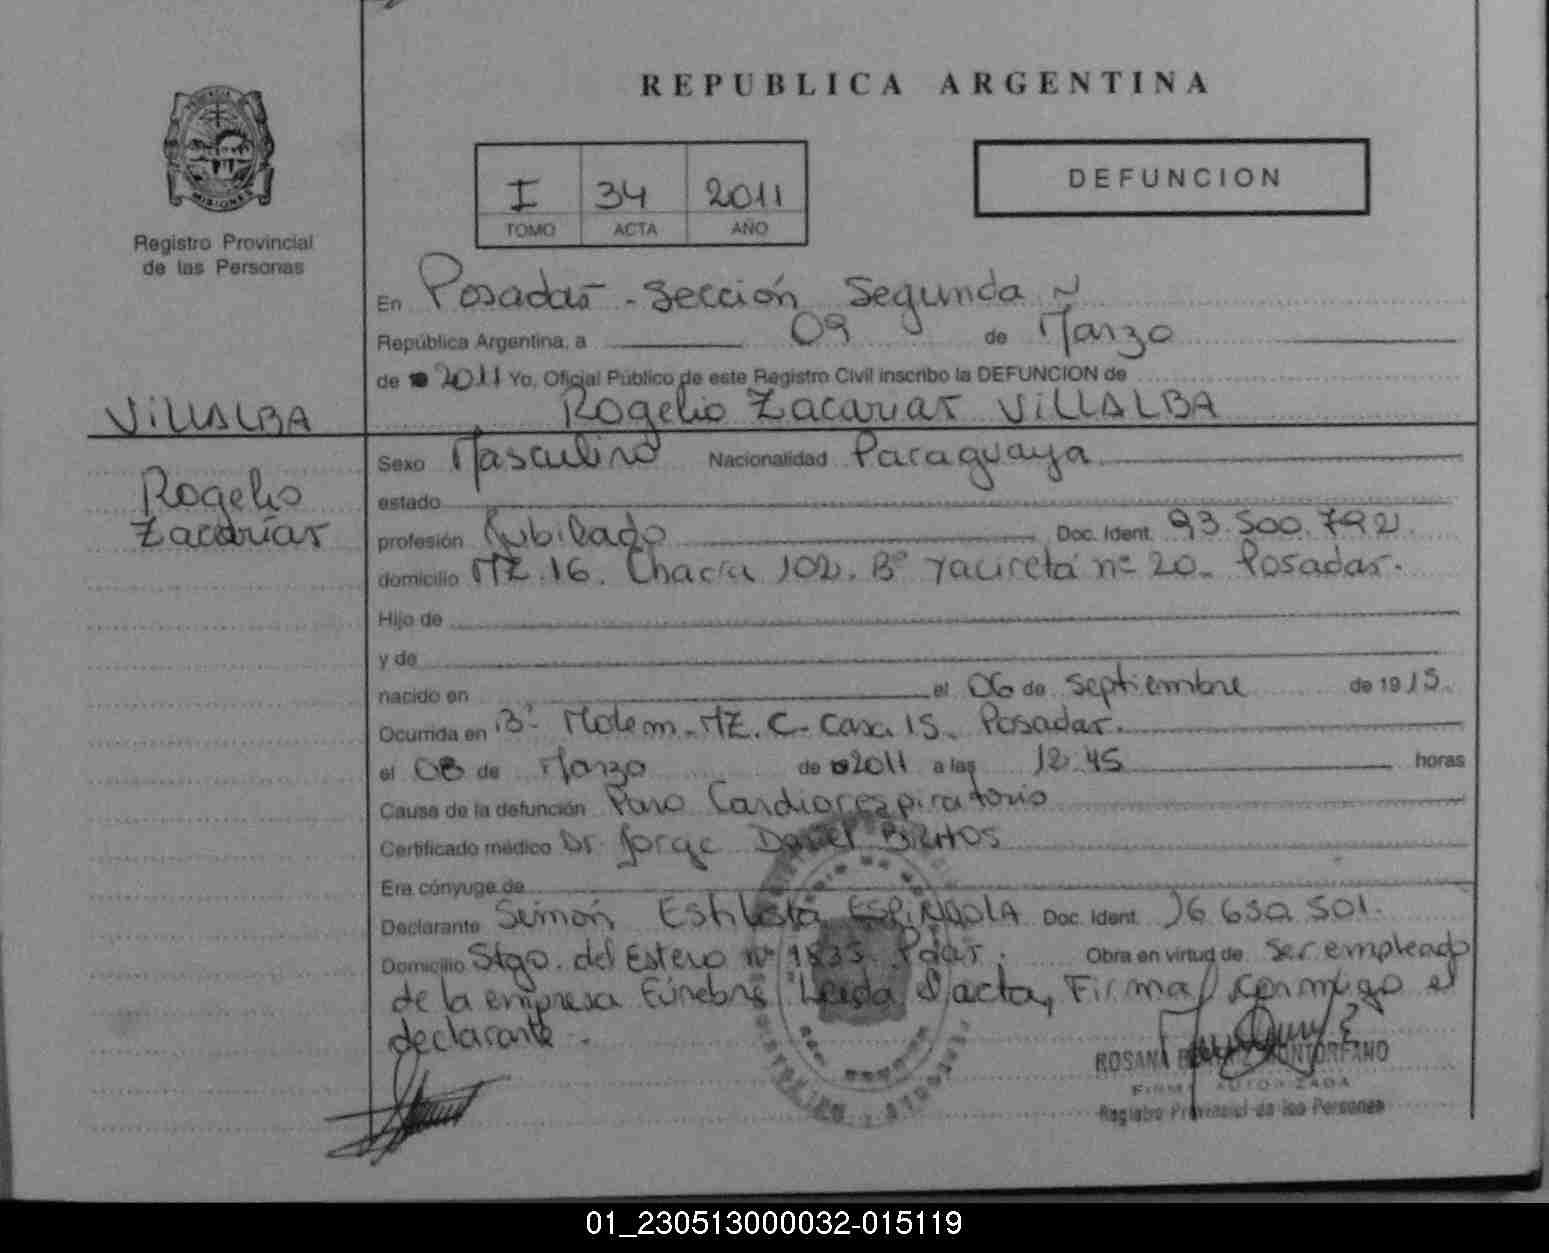 REPUBLICA ARGENTINA
MISIONES
Registro Provincial
de las Personas
I 34 2011
TOMO ACTA AÑO
DEFUNCION
En Posadas - Sección Segunda
República Argentina, a 09 de Marzo
de 2011 Yo, Oficial Público de este Registro Civil inscribo la DEFUNCION de
Rogelio Zacarias VILLALBA
VILLALBA
Rogelio
Zacarías
Sexo Masculino Nacionalidad Paraguaya
estado
profesión Jubilado Doc. Ident. 93.500.792.
domicilio MZ.16. Chacra 102. Bº Yacireta nº 20. Posadas.
Hijo de
y de
nacido en el 06 de Septiembre de 1915.
Ocurrida en Bº Mz. C. Casa 15. Posadas.
el 08 de Marzo de 2011 a las 12:45 horas
Causa de la defunción Paro Cardiorespiratorio
Certificado médico Dr. Jorge
Era cónyuge de
Declarante Simón ESPINDOLA Doc. Ident. 16.630.501.
Domicilio Stgo. del Estero nº Pdas. Obra en virtud de Ser empleado
de la empresa Fúnebre Leida el acta, Firma conmigo el
declarante.
ROSANA MONTORFANO
FIRMA AUTORIZADA
Registro Provincial de las Personas
01_230513000032-015119